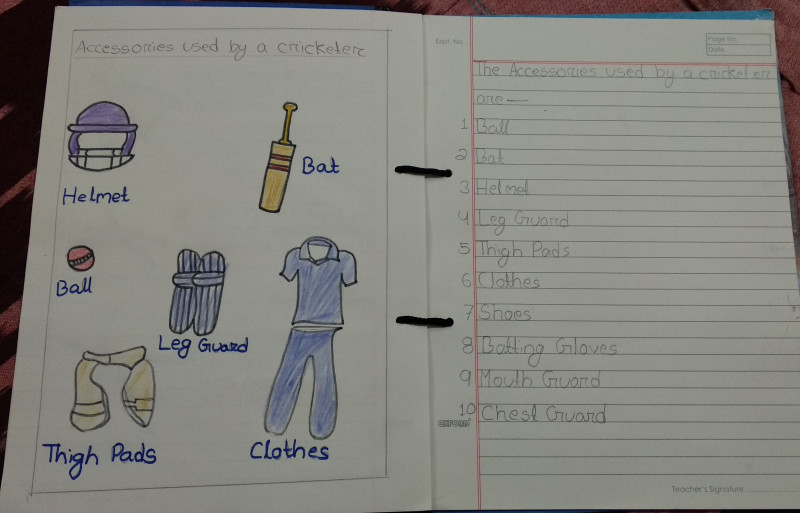 Accessories used by a cricketer
Helmet
Bat
Ball
Leg Guard
Thigh Pads
Clothes
Expt. No.
Page No.
Date
The Accessories used by a cricketer
are—
1 Ball
2 Bat
3 Helmet
4 Leg Guard
5 Thigh Pads
6 Clothes
7 Shoes
8 Batting Gloves
9 Mouth Guard
10 Chest Guard
Teacher's Signature